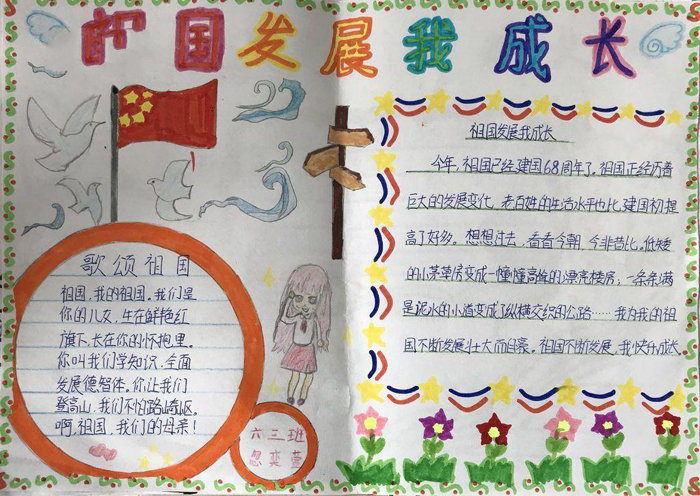 祖国发展我成长
歌颂祖国
祖国,我的祖国。我们是
你的儿女,生在鲜艳红
旗下,长在你的怀抱里。
你叫我们学知识,全面
发展德智体。你让我们
登高山,我们不怕路崎岖。
啊,祖国,我们的母亲!
六三班
忽奕萱
祖国发展我成长
今年,祖国已经建国68周年了。祖国正经历着
巨大的发展变化,老百姓的生活水平也比建国初提
高了好多。想想过去,看看今朝,今非昔比。低矮
的小茅草房变成一幢幢高耸的漂亮楼房;一条条满
是泥水的小道变成了纵横交织的公路……我为我的祖
国不断发展壮大而自豪。祖国不断发展,我快乐成长